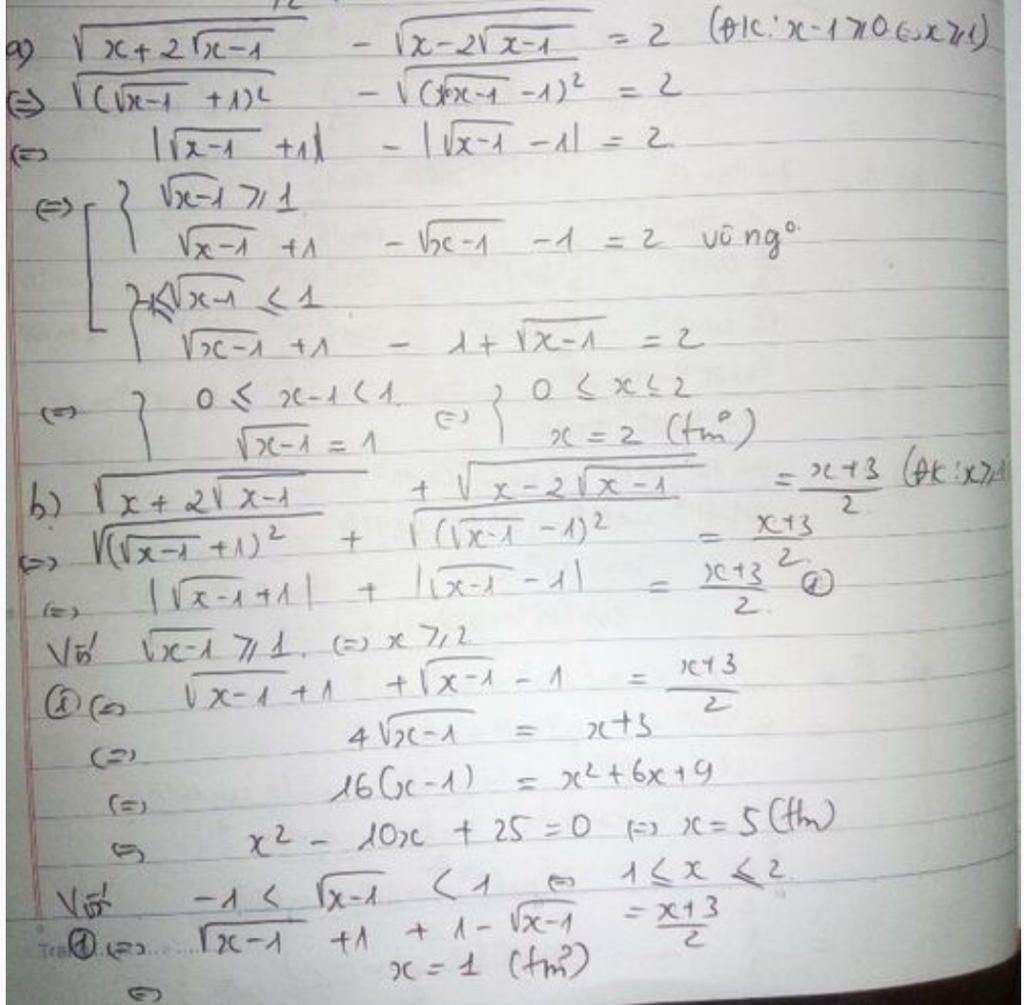 a) √(x+2√(x-1)) - √(x-2√(x-1)) = 2 (ĐK: x-1≥0 ⇔ x≥1)
⇔ √((√(x-1) +1)²) - √((√(x-1) -1)²) = 2
⇔ |√(x-1) +1| - |√(x-1) -1| = 2
⇔ [ { √(x-1) ≥ 1
√(x-1) +1 - √(x-1) -1 = 2 vô ngº
{ √(x-1) < 1
√(x-1) +1 - 1+√(x-1) = 2
⇔ { 0 ≤ x-1 < 1 ⇔ { 0 ≤ x ≤ 2
√(x-1) = 1 x = 2 (tmº)
b) √(x+2√(x-1)) + √(x-2√(x-1)) = (x+3)/2 (ĐK: x≥1
⇔ √((√(x-1) +1)²) + √((√(x-1) -1)²) = (x+3)/2
⇔ |√(x-1) +1| + |√(x-1) -1| = (x+3)/2 ①
Với √(x-1) ≥ 1. ⇔ x ≥ 2
① ⇔ √(x-1) +1 + √(x-1) - 1 = (x+3)/2
⇔ 4√(x-1) = x+3
⇔ 16(x-1) = x²+6x+9
⇔ x² - 10x + 25 = 0 ⇔ x = 5 (tm)
Với -1 < √(x-1) < 1 ⇔ 1 ≤ x ≤ 2
① ⇔ √(x-1) +1 + 1-√(x-1) = (x+3)/2
⇔ x = 1 (tmº)